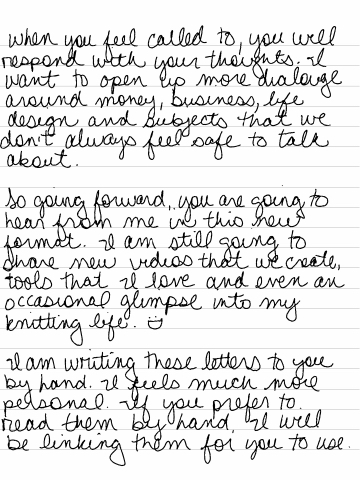 when you feel called to, you will
respond with your thoughts. I
want to open up more dialouge
around money, business, life
design and subjects that we
don't always feel safe to talk
about.

So going forward, you are going to
hear from me in this new
format. I am still going to
share new videos that we create,
tools that I love and even an
occasional glimpse into my
knitting life. ☺

I am writing these letters to you
by hand. It feels much more
personal. If you prefer to
read them by hand, I will
be linking them for you to use.